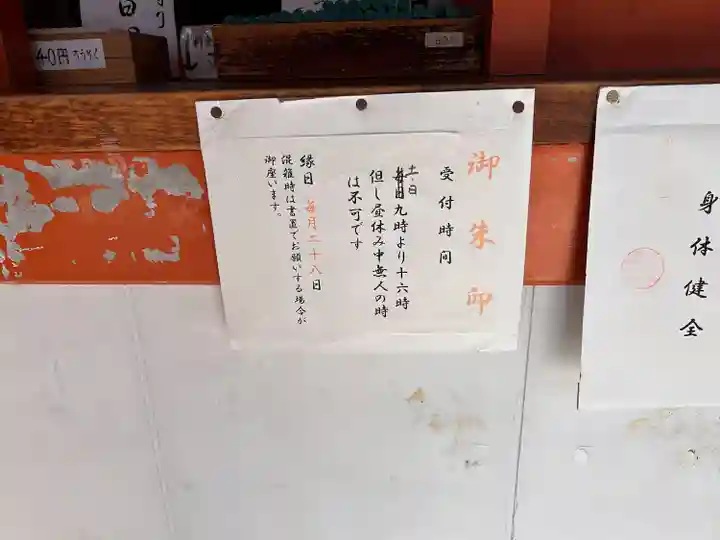 40円
ろうそく
御朱印
受付時間
土・日
毎日九時より十六時
但し昼休み中無人の時
は不可です
縁日 毎月二十八日
混雑時は書置でお願いする場合が
御座います。
身体健全